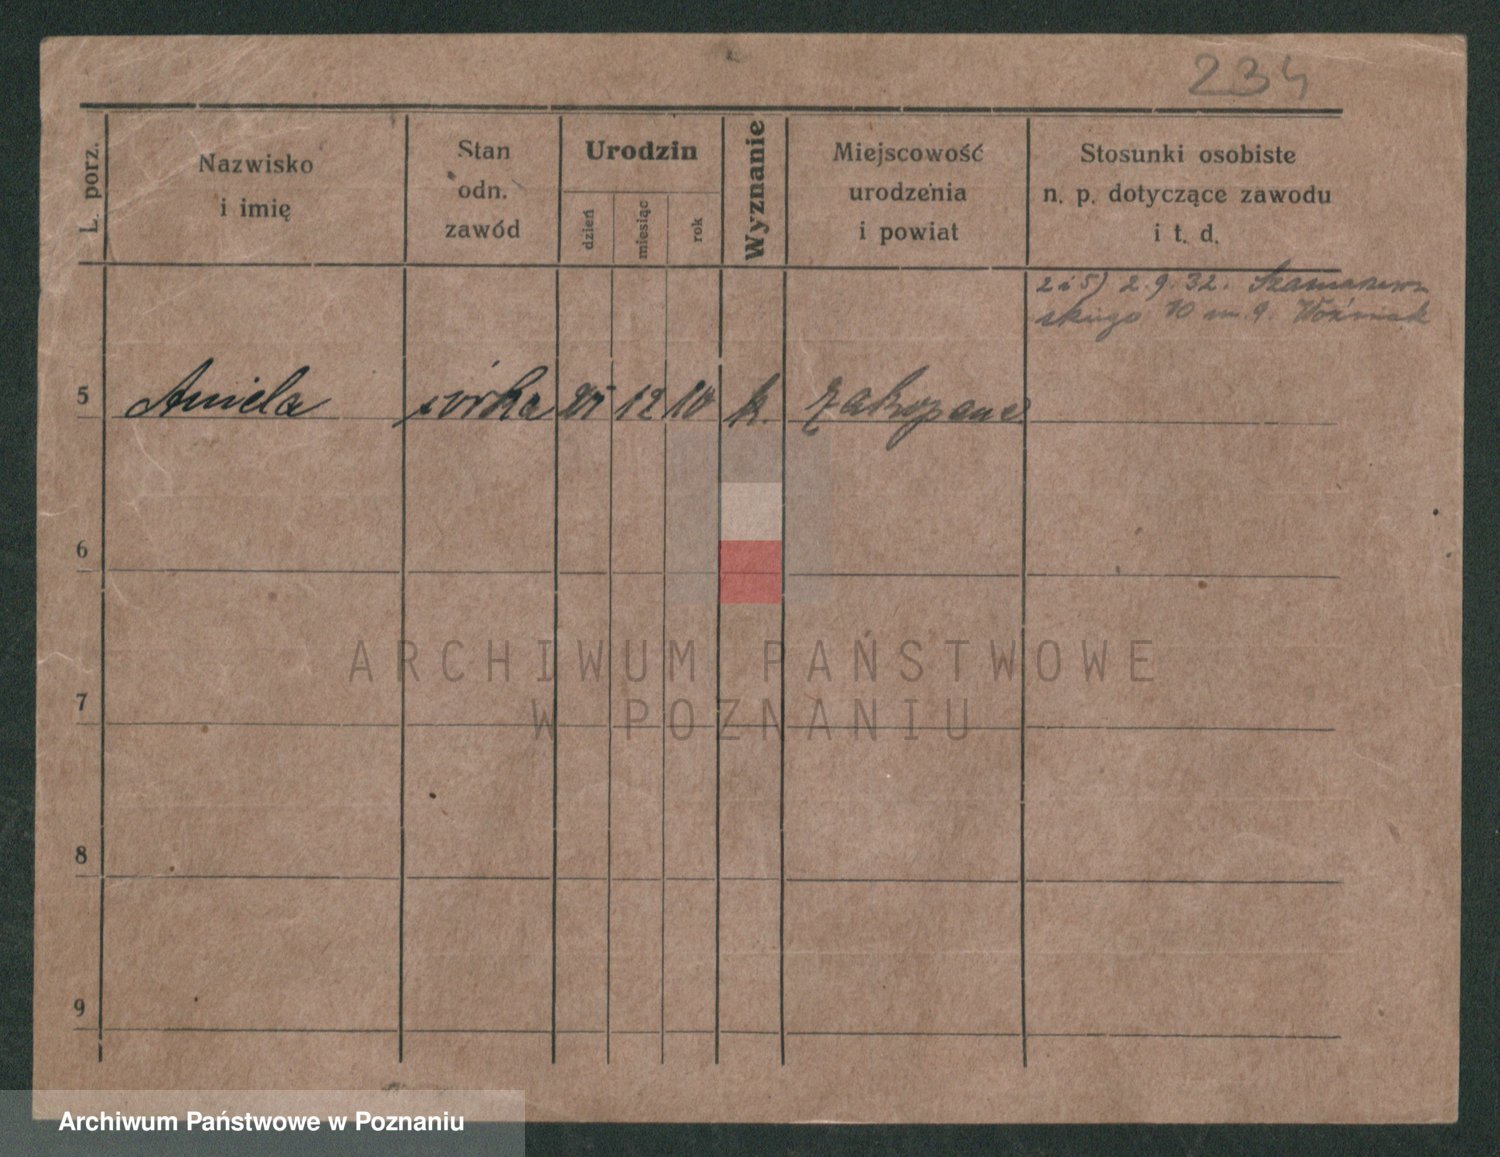 234
L. porz.
Nazwisko
i imię
Stan
odn.
zawód
Urodzin
dzień
miesiąc
rok
Wyznanie
Miejscowość
urodzenia
i powiat
Stosunki osobiste
n. p. dotyczące zawodu
i t. d.
2 i 5) 2.9.32. Szamarzew-
skiego 10 m. 9. Woźniak
5 Aniela córka 12 10 k. Zakopane
6
7
8
9
ARCHIWUM PAŃSTWOWE
W POZNANIU
Archiwum Państwowe w Poznaniu